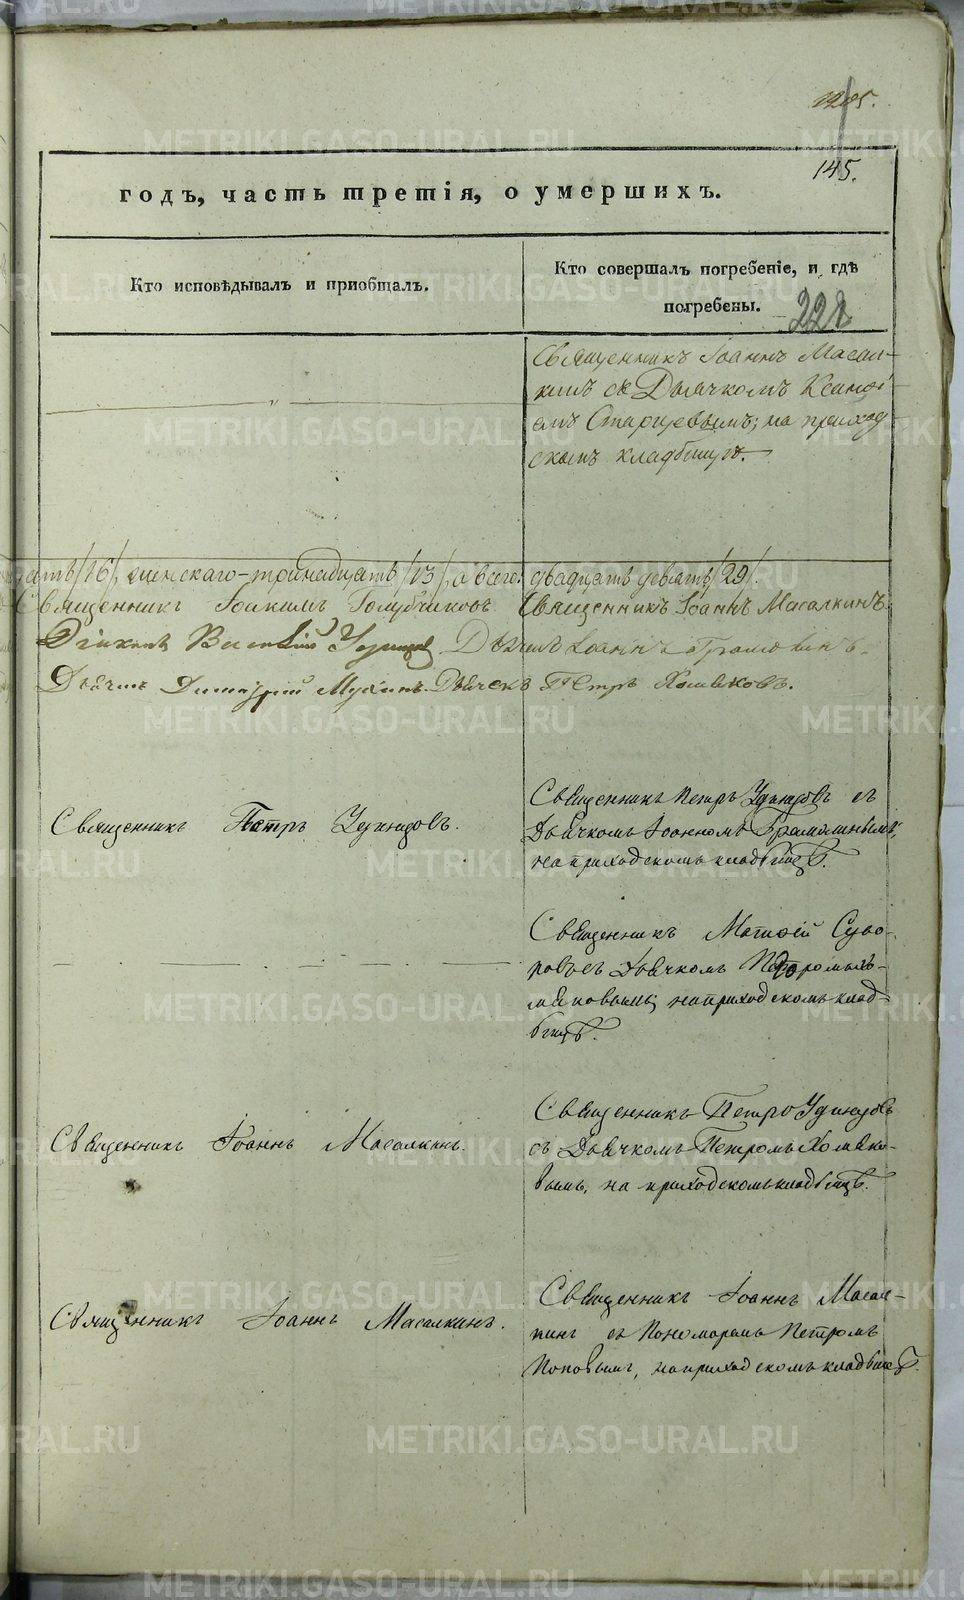 145.
годъ, часть третія, о умершихъ.
Кто исповѣдывалъ и приобщалъ.
Кто совершалъ погребеніе, и гдѣ
погребены.
228
Священникъ Іоаннъ Масал-
кинъ съ Дьячкомъ
Старцевымъ; на приход
скомъ кладбищѣ.
/16/, женскаго - тринадцать /13/, а всего: двадцать девять /29/.
Священникъ Іоакимъ Голубчиковъ. Священникъ Іоаннъ Масалкинъ.
Дьячекъ Іоаннъ
Димитрій Мухинъ. Дьячекъ Петръ Хомяковъ.
Священникъ Петръ Удинцовъ.
Священникъ Петръ Удинцовъ съ
Дьячкомъ Іоанномъ Грамолинымъ,
на приходскомъ кладбищѣ.
Священникъ Матфей Суво-
ровъ съ Дьячкомъ
на приходскомъ клад-
бищѣ.
Священникъ Іоаннъ Масалкинъ.
Священникъ Петръ Удинцовъ
съ Дьячкомъ Петромъ Хомяко-
вымъ, на приходскомъ кладбищѣ.
Священникъ Іоаннъ Масалкинъ.
Священникъ Іоаннъ Масал-
кинъ съ Пономаремъ Петромъ
Поповымъ, на приходскомъ кладбищѣ.
METRIKI.GASO-URAL.RU